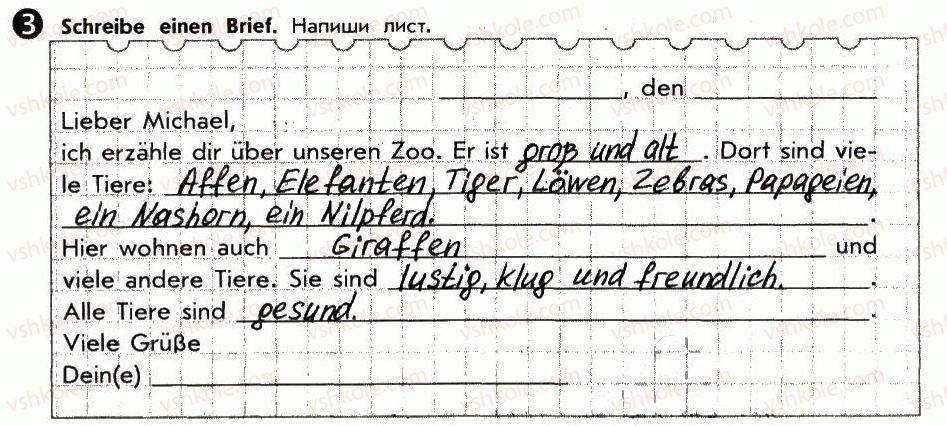 3 Schreibe einen Brief. Напиши лист.
____________, den ____________
Lieber Michael,
ich erzähle dir über unseren Zoo. Er ist groß und alt. Dort sind vie-
le Tiere: Affen, Elefanten, Tiger, Löwen, Zebras, Papageien,
ein Nashorn, ein Nilpferd.
Hier wohnen auch Giraffen und
viele andere Tiere. Sie sind lustig, klug und freundlich.
Alle Tiere sind gesund.
Viele Grüße
Dein(e) ____________